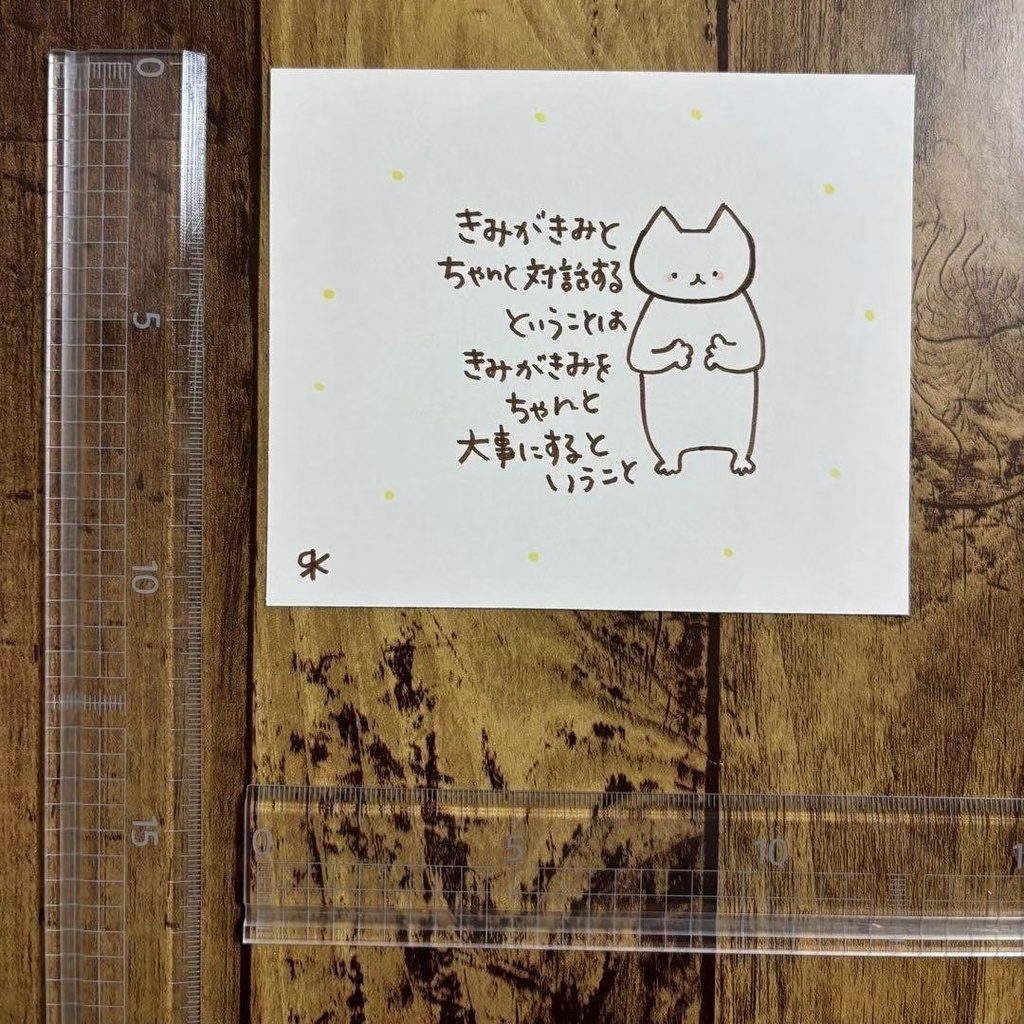 きみがきみと
ちゃんと対話する
ということは
きみがきみを
ちゃんと
大事にすると
いうこと
0
5
10
15
0
5
10